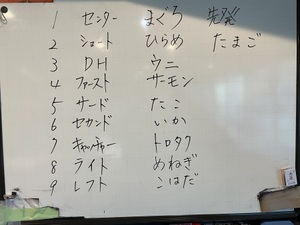 1 センター まぐろ 先発
2 ショート ひらめ たまご
3 DH ウニ
4 ファースト サーモン
5 サード たこ
6 セカンド いか
7 キャッチャー トロタク
8 ライト めねぎ
9 レフト こはだ